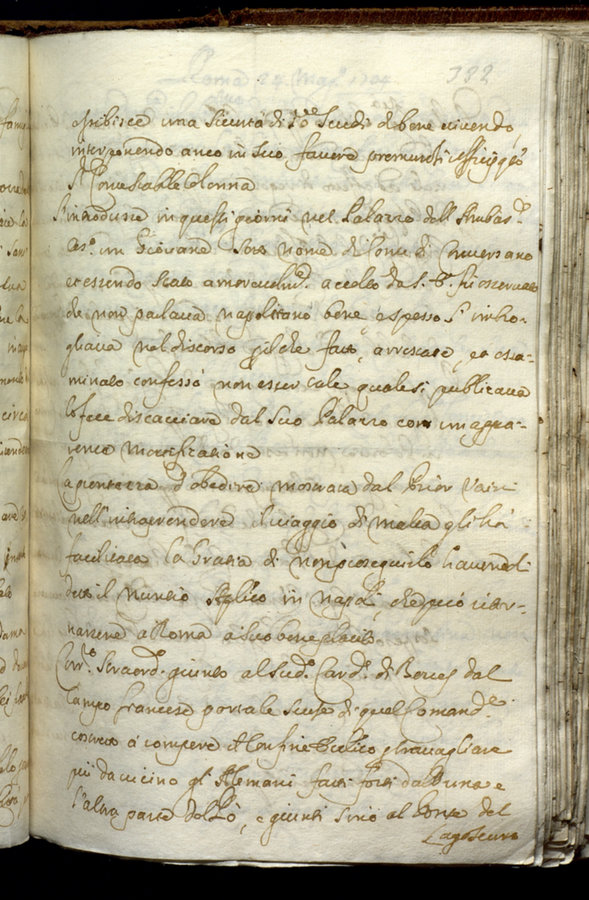 Roma 24 Mag.º 1704
382
esibisce una sicurtà di scudi di bene vivendo,
interponendo anco in suo favore premurosi officij
Sʳ Contestabile Colonna
S'introdusse in questi giorni nel Palazzo dell'Ambasʳᵉ
un Giovane sotto nome di Conte di Conversano
et essendo stato amorevolmᵗᵉ accolto da S. E. fù osservato
che non parlava napolitano bene, e spesso s'imbro-
gliava nel discorso, fatto arrestare, et esa-
minato confessò non esser tale quale si publicava
lo fece discacciare dal suo Palazzo con un appa-
rente mortificatione
La prontezza d'obedire mostrata dal Prior Vaini
nell'intraprendere il viaggio di Malta gli hà
facilitata la Gratia di non proseguirlo havendoli
detto il Nuntio Aplico in Napoli, che può ritor-
narsene a Roma à suo bene placito
Corrº straordº giunto al Sudº Cardˡ di
dal
Campo francese porta le scuse di quel Comandᵉ
costretto à rompere il Confine Eccᶜᵒ travagliare
più da vicino gl'Alemani fatti forti dall'una e
l'altra parte del Pò, e giunti sino al Ponte del
Lagoscuro